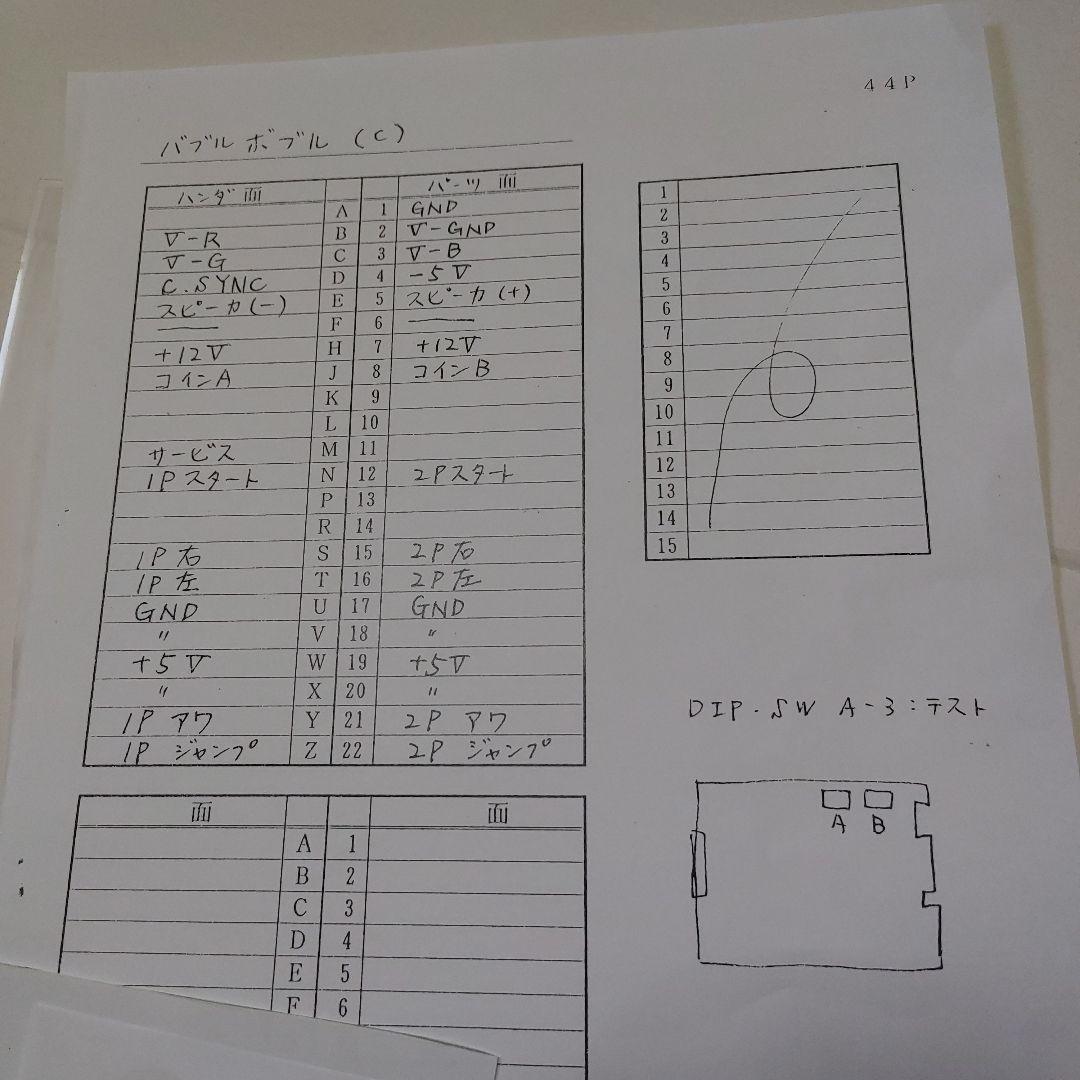 44P
バブルボブル (C)
ハンダ面 パーツ面
A 1 GND
V-R B 2 V-GND
V-G C 3 V-B
C.SYNC D 4 -5V
スピーカ(-) E 5 スピーカ(+)
F 6
+12V H 7 +12V
コインA J 8 コインB
K 9
L 10
サービス M 11
1Pスタート N 12 2Pスタート
P 13
R 14
1P右 S 15 2P右
1P左 T 16 2P左
GND U 17 GND
〃 V 18 〃
+5V W 19 +5V
〃 X 20 〃
1P アワ Y 21 2P アワ
1P ジャンプ Z 22 2P ジャンプ
面 面
A 1
B 2
C 3
D 4
E 5
F 6
1
2
3
4
5
6
7
8
9
10
11
12
13
14
15
DIP.SW A-3:テスト
A B